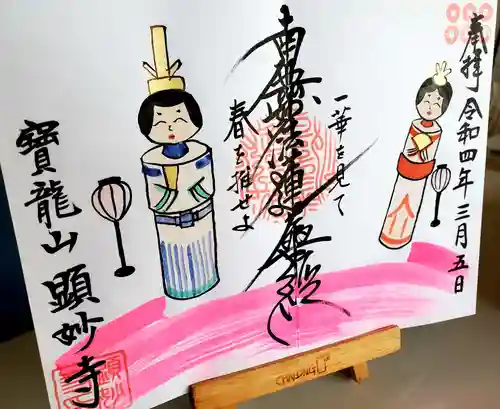 奉拝
令和四年三月五日
一華を見て
南無妙法蓮華経
春を推せよ
寶龍山 顕妙寺